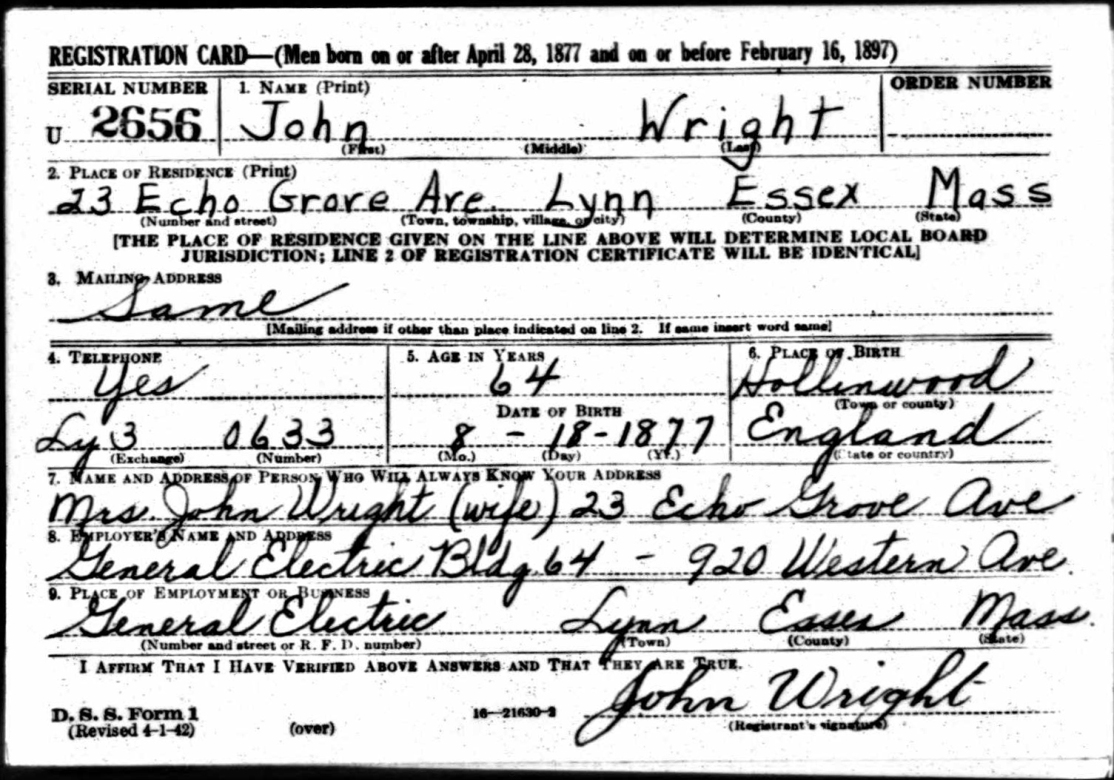 REGISTRATION CARD—(Men born on or after April 28, 1877 and on or before February 16, 1897)
SERIAL NUMBER 1. NAME (Print) ORDER NUMBER
U 2656 John Wright
(First) (Middle) (Last)
2. PLACE OF RESIDENCE (Print)
23 Echo Grove Ave. Lynn Essex Mass
(Number and street) (Town, township, village, or city) (County) (State)
[THE PLACE OF RESIDENCE GIVEN ON THE LINE ABOVE WILL DETERMINE LOCAL BOARD
JURISDICTION; LINE 2 OF REGISTRATION CERTIFICATE WILL BE IDENTICAL]
3. MAILING ADDRESS
Same
[Mailing address if other than place indicated on line 2. If same insert word same]
4. TELEPHONE 5. AGE IN YEARS 6. PLACE OF BIRTH
Yes 64 Hollinwood
DATE OF BIRTH (Town or county)
Ly 3 0633 8 - 18-1877 England
(Exchange) (Number) (Mo.) (Day) (Yr.) (State or country)
7. NAME AND ADDRESS OF PERSON WHO WILL ALWAYS KNOW YOUR ADDRESS
Mrs. John Wright (wife) 23 Echo Grove Ave
8. EMPLOYER'S NAME AND ADDRESS
General Electric Bldg 64 - 920 Western Ave.
9. PLACE OF EMPLOYMENT OR BUSINESS
General Electric Lynn Essex Mass.
(Number and street or R. F. D. number) (Town) (County) (State)
I AFFIRM THAT I HAVE VERIFIED ABOVE ANSWERS AND THAT THEY ARE TRUE.
John Wright
D. S. S. Form 1 16—21630-2
(Revised 4-1-42) (over) (Registrant's signature)